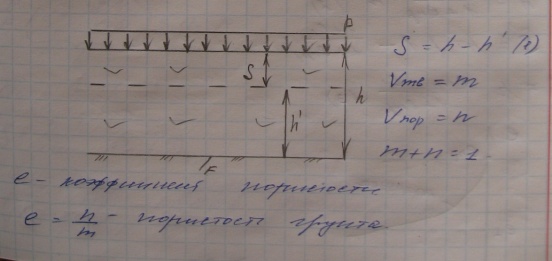 P
S = h - h' (1)
S
h
Vтв = m
h'
Vпор = n
m + n = 1
F
e - коэффициент пористости
e = n/m - пористость грунта